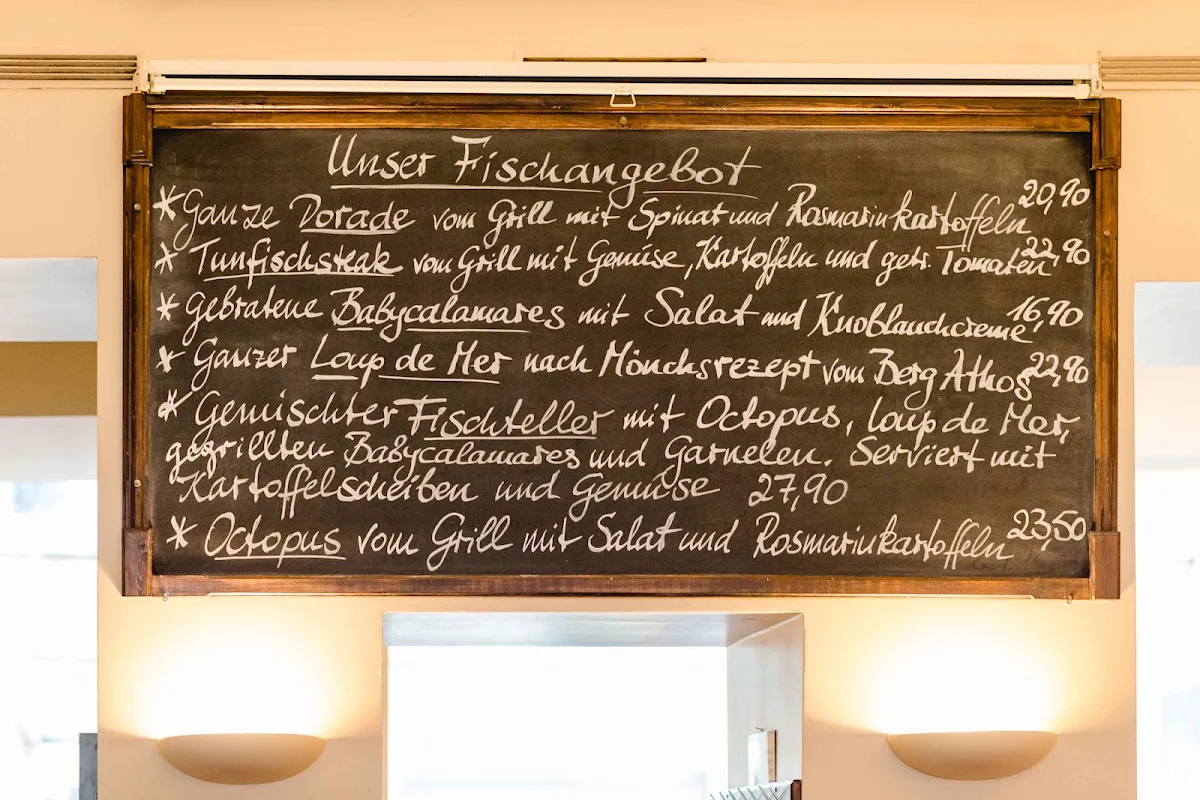 Unser Fischangebot
* Ganze Dorade vom Grill mit Spinat und Rosmarinkartoffeln 20,90
* Tunfischsteak vom Grill mit Gemüse, Kartoffeln und getr. Tomaten 22,90
* Gebratene Babycalamares mit Salat und Knoblauchcreme 16,90
* Ganzer Loup de Mer nach Mönchsrezept vom Berg Athos 22,90
* Gemischter Fischteller mit Octopus, Loup de Mer,
gegrillten Babycalamares und Garnelen. Serviert mit
Kartoffelscheiben und Gemüse 27,90
* Octopus vom Grill mit Salat und Rosmarinkartoffeln 23,50